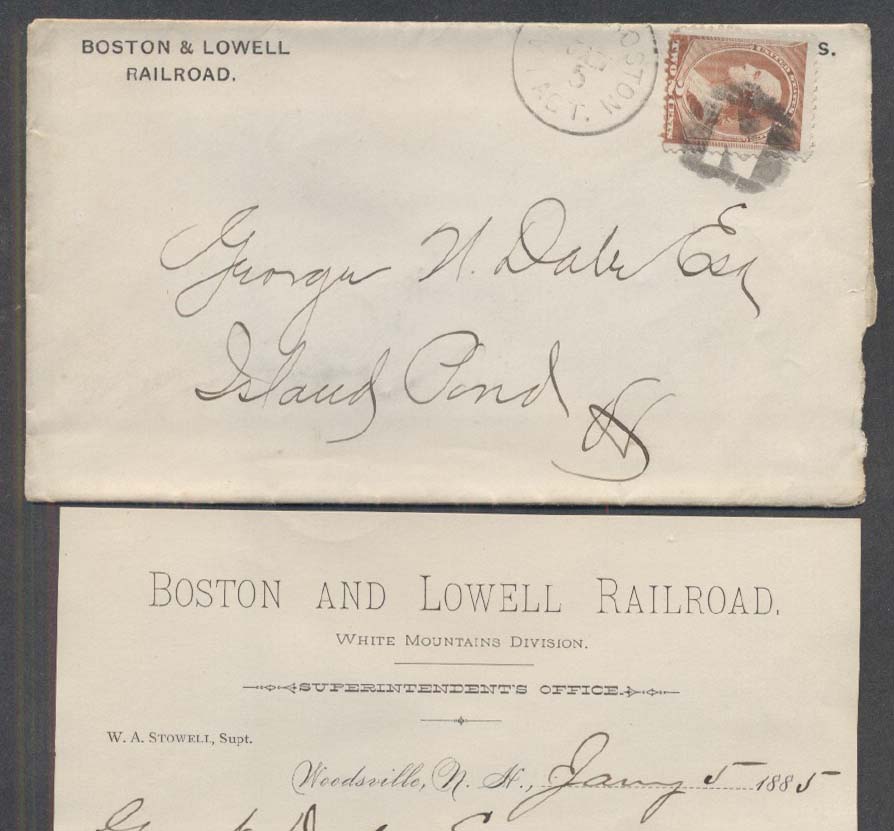 BOSTON & LOWELL
RAILROAD.
BOSTON
5
ACT.
S.
George N. Dale Esq
Island Pond
Vt
BOSTON AND LOWELL RAILROAD.
WHITE MOUNTAINS DIVISION.
SUPERINTENDENT'S OFFICE.
W. A. STOWELL, Supt.
Woodsville, N. H., Jany 5 1885